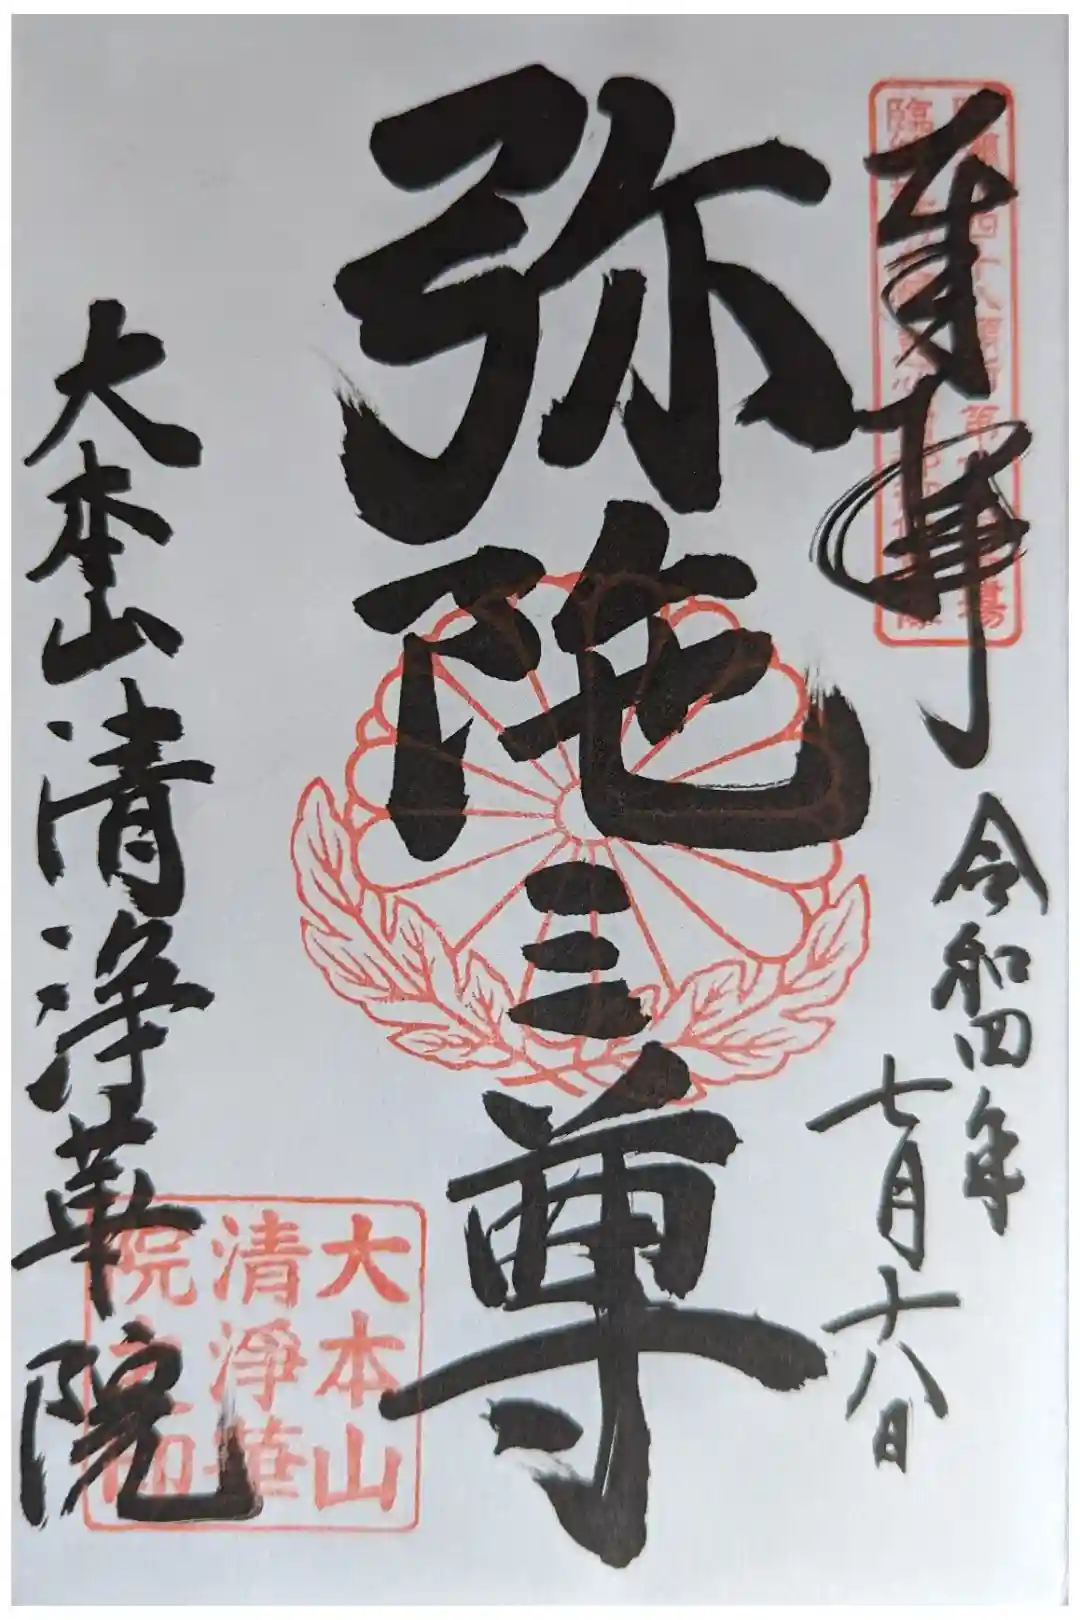 奉拝
令和四年
七月十八日
弥陀三尊
大本山清浄華院
大本山
清淨華
院之印